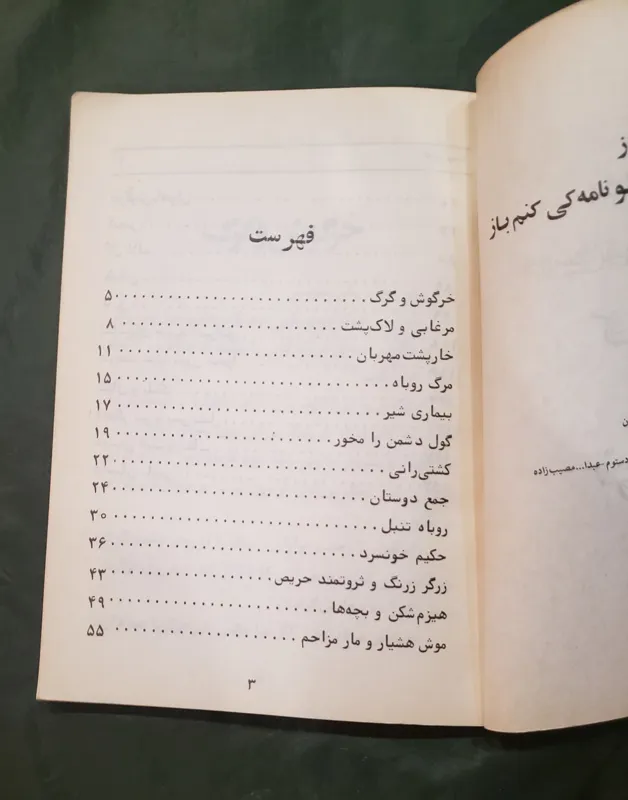 ز
و نامه کی کنم باز
دستوم-عبدا...مصیب‌زاده
فهرست
خرگوش و گرگ ............................ ۵
مرغابی و لاک‌پشت ........................ ۸
خارپشت مهربان .......................... ۱۱
مرگ روباه .............................. ۱۵
بیماری شیر ............................. ۱۷
گول دشمن را مخور ....................... ۱۹
کشتی‌رانی .............................. ۲۲
جمع دوستان ............................. ۲۴
روباه تنبل ............................. ۳۰
حکیم خونسرد ............................ ۳۶
زرگر زرنگ و ثروتمند حریص ............... ۴۳
هیزم‌شکن و بچه‌ها ...................... ۴۹
موش هشیار و مار مزاحم .................. ۵۵
۳